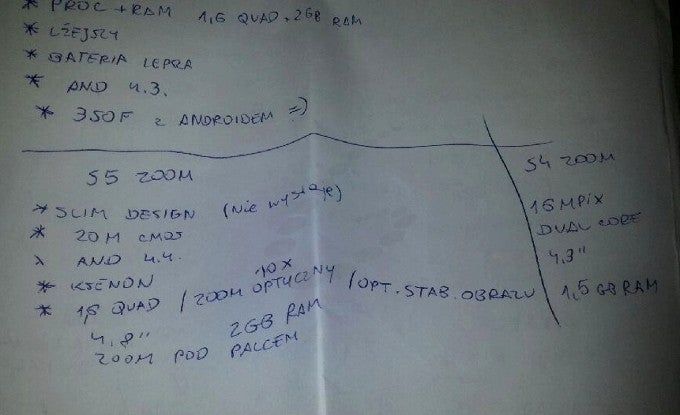 * PROC + RAM 1,6 QUAD + 2GB RAM
* LŻEJSZY
* BATERIA LEPRA
* AND 4.3.
* 350F z ANDROIDEM =)
S5 ZOOM
* SLIM DESIGN (Nie wystaje)
* 20M CMOS
* AND 4.4.
* KSENON
* 1,6 QUAD / ZOOM OPTYCZNY 10X / OPT. STAB. OBRAZU
4,8" 2GB RAM
ZOOM POD PALCEM
S4 ZOOM
16 MPIX
DUAL CORE
4,3"
1,5 GB RAM